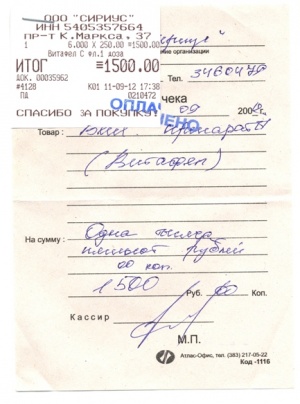 ООО "СИРИУС"
ИНН 5405357664
пр-т К.Маркса, 37
1 6.000 X 250.00 =1500.00
Витафел С фл.1 доза
ИТОГ =1500.00
ДОК. 00035962
#4128 К01 11-09-12 17:38
ПД 0210472
СПАСИБО ЗА ПОКУПКУ!
ание организации
Тел. 3460448
ОПЛАЧЕНО
чека
09 200
Товар :
(Витафел)
На сумму : Одна тысяча
пятьсот рублей
00 коп.
1500 Руб. 00 Коп.
Кассир
М.П.
Атлас-Офис, тел. (383) 217-05-22
Код -1116